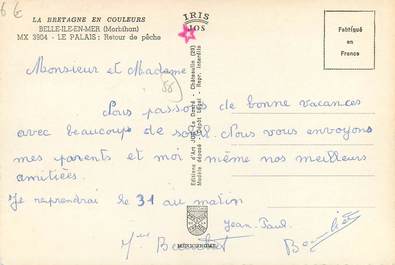 6 €
LA BRETAGNE EN COULEURS
BELLE-ILE-EN-MER (Morbihan)
MX 3904 - LE PALAIS : Retour de pêche
IRIS
JOS
Fabriqué
en
France
Monsieur et Madame
Nous passons de bonne vacances
avec beaucoup de soleil. Nous vous envoyons
mes parents et moi même nos meilleurs
amitiées.
Je reprendrai le 31 au matin
Jean-Paul.
Editions d'Art JOS Le Doaré - Châteaulin (29)
Modèle déposé - Dépôt légal - Repr. interdite